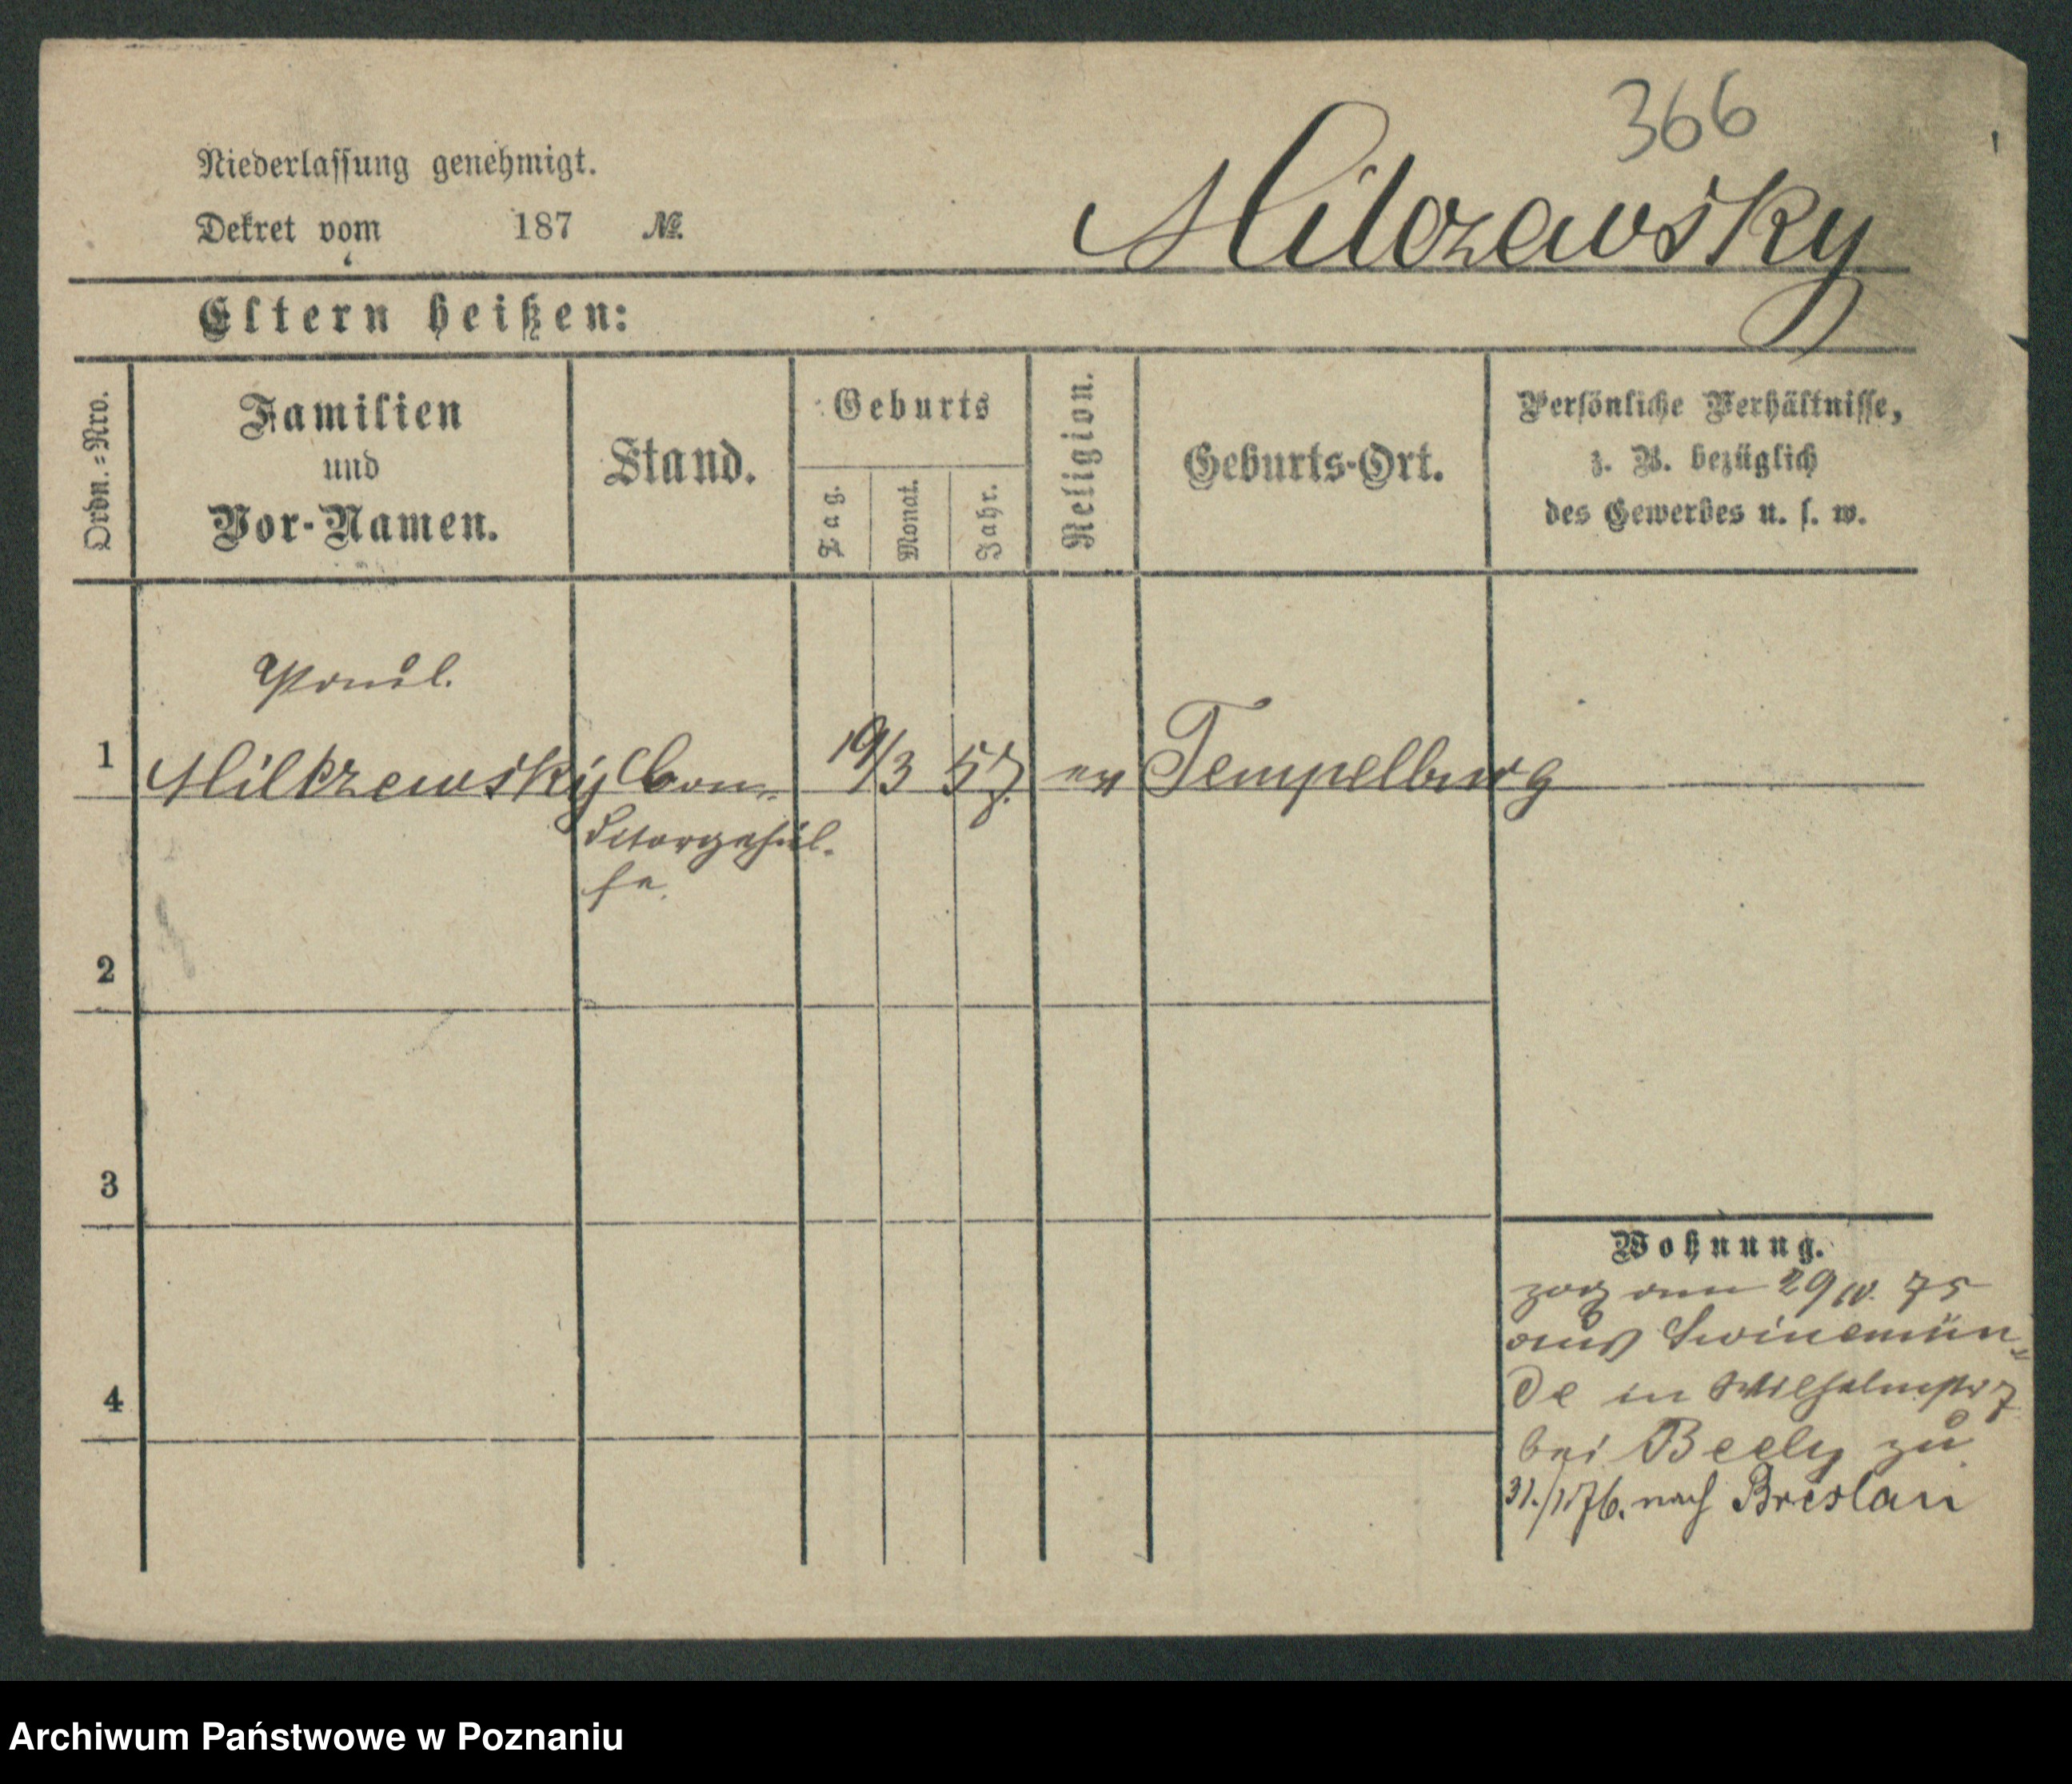 366
Niederlassung genehmigt.
Milczewsky
Dekret vom 187 №.
Eltern heißen:
Ordn.=Nro.
Familien
und
Vor-Namen.
Stand.
Geburts
Tag.
Monat.
Jahr.
Religion.
Geburts-Ort.
Persönliche Verhältnisse,
z. B. bezüglich
des Gewerbes u. s. w.
Paul.
1 Milczewsky Con-
ditorgehül-
fe.
19/3 57. ev Tempelburg
2
3
4
Wohnung.
zog am 29 IV. 75
aus Swinemün-
de in Wilhelmstr 7
bei Beely zu
31./1.76. nach Breslau
Archiwum Państwowe w Poznaniu